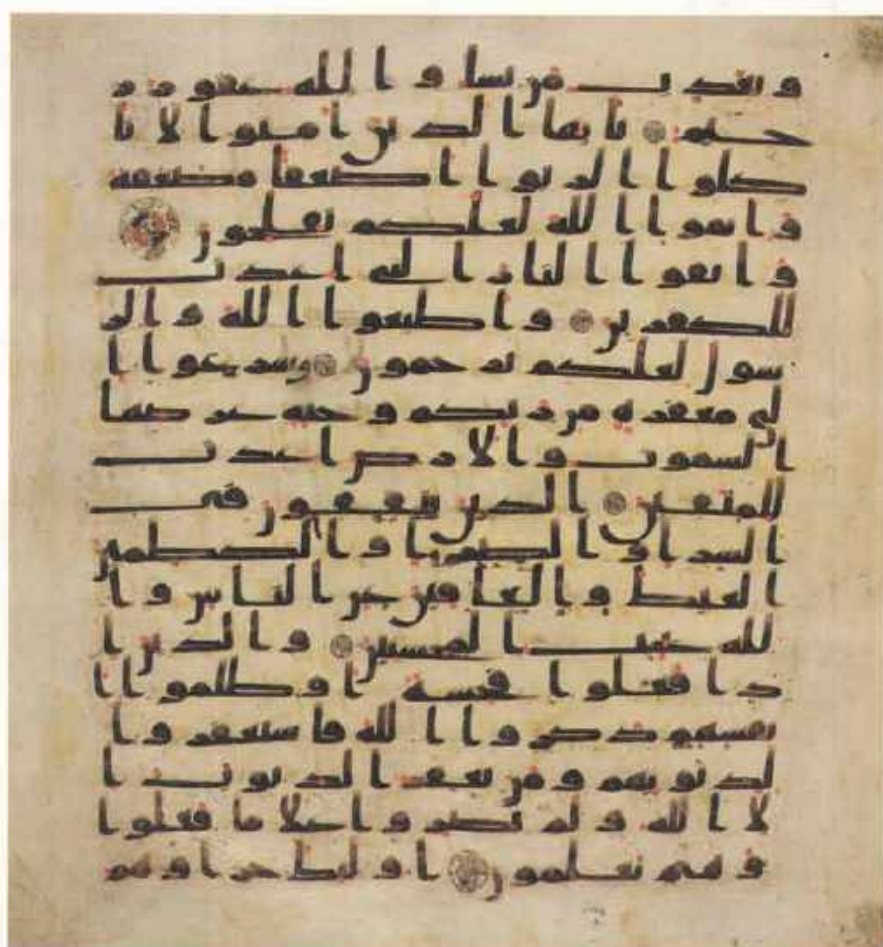 ويعذب من يشا والله غفور ر
حيم يايها الذين امنوا لا تا
كلوا الربوا اضعفا مضعفه
واتقوا الله لعلكم تفلحون
واتقوا النار التي اعدت
للكفرين واطيعوا الله والر
سول لعلكم ترحمون وسرعوا ا
لى مغفره من ربكم وجنه عرضها
السموت والارض اعدت
للمتقين الذين ينفقون في
السرا والضرا والكظمين
الغيظ والعافين عن الناس وا
لله يحب المحسنين والذين ا
ذا فعلوا فحشه او ظلموا ا
نفسهم ذكروا الله فاستغفروا
لذنوبهم ومن يغفر الذنوب ا
لا الله ولم يصروا على ما فعلوا
وهم يعلمون اوليك جزاوهم